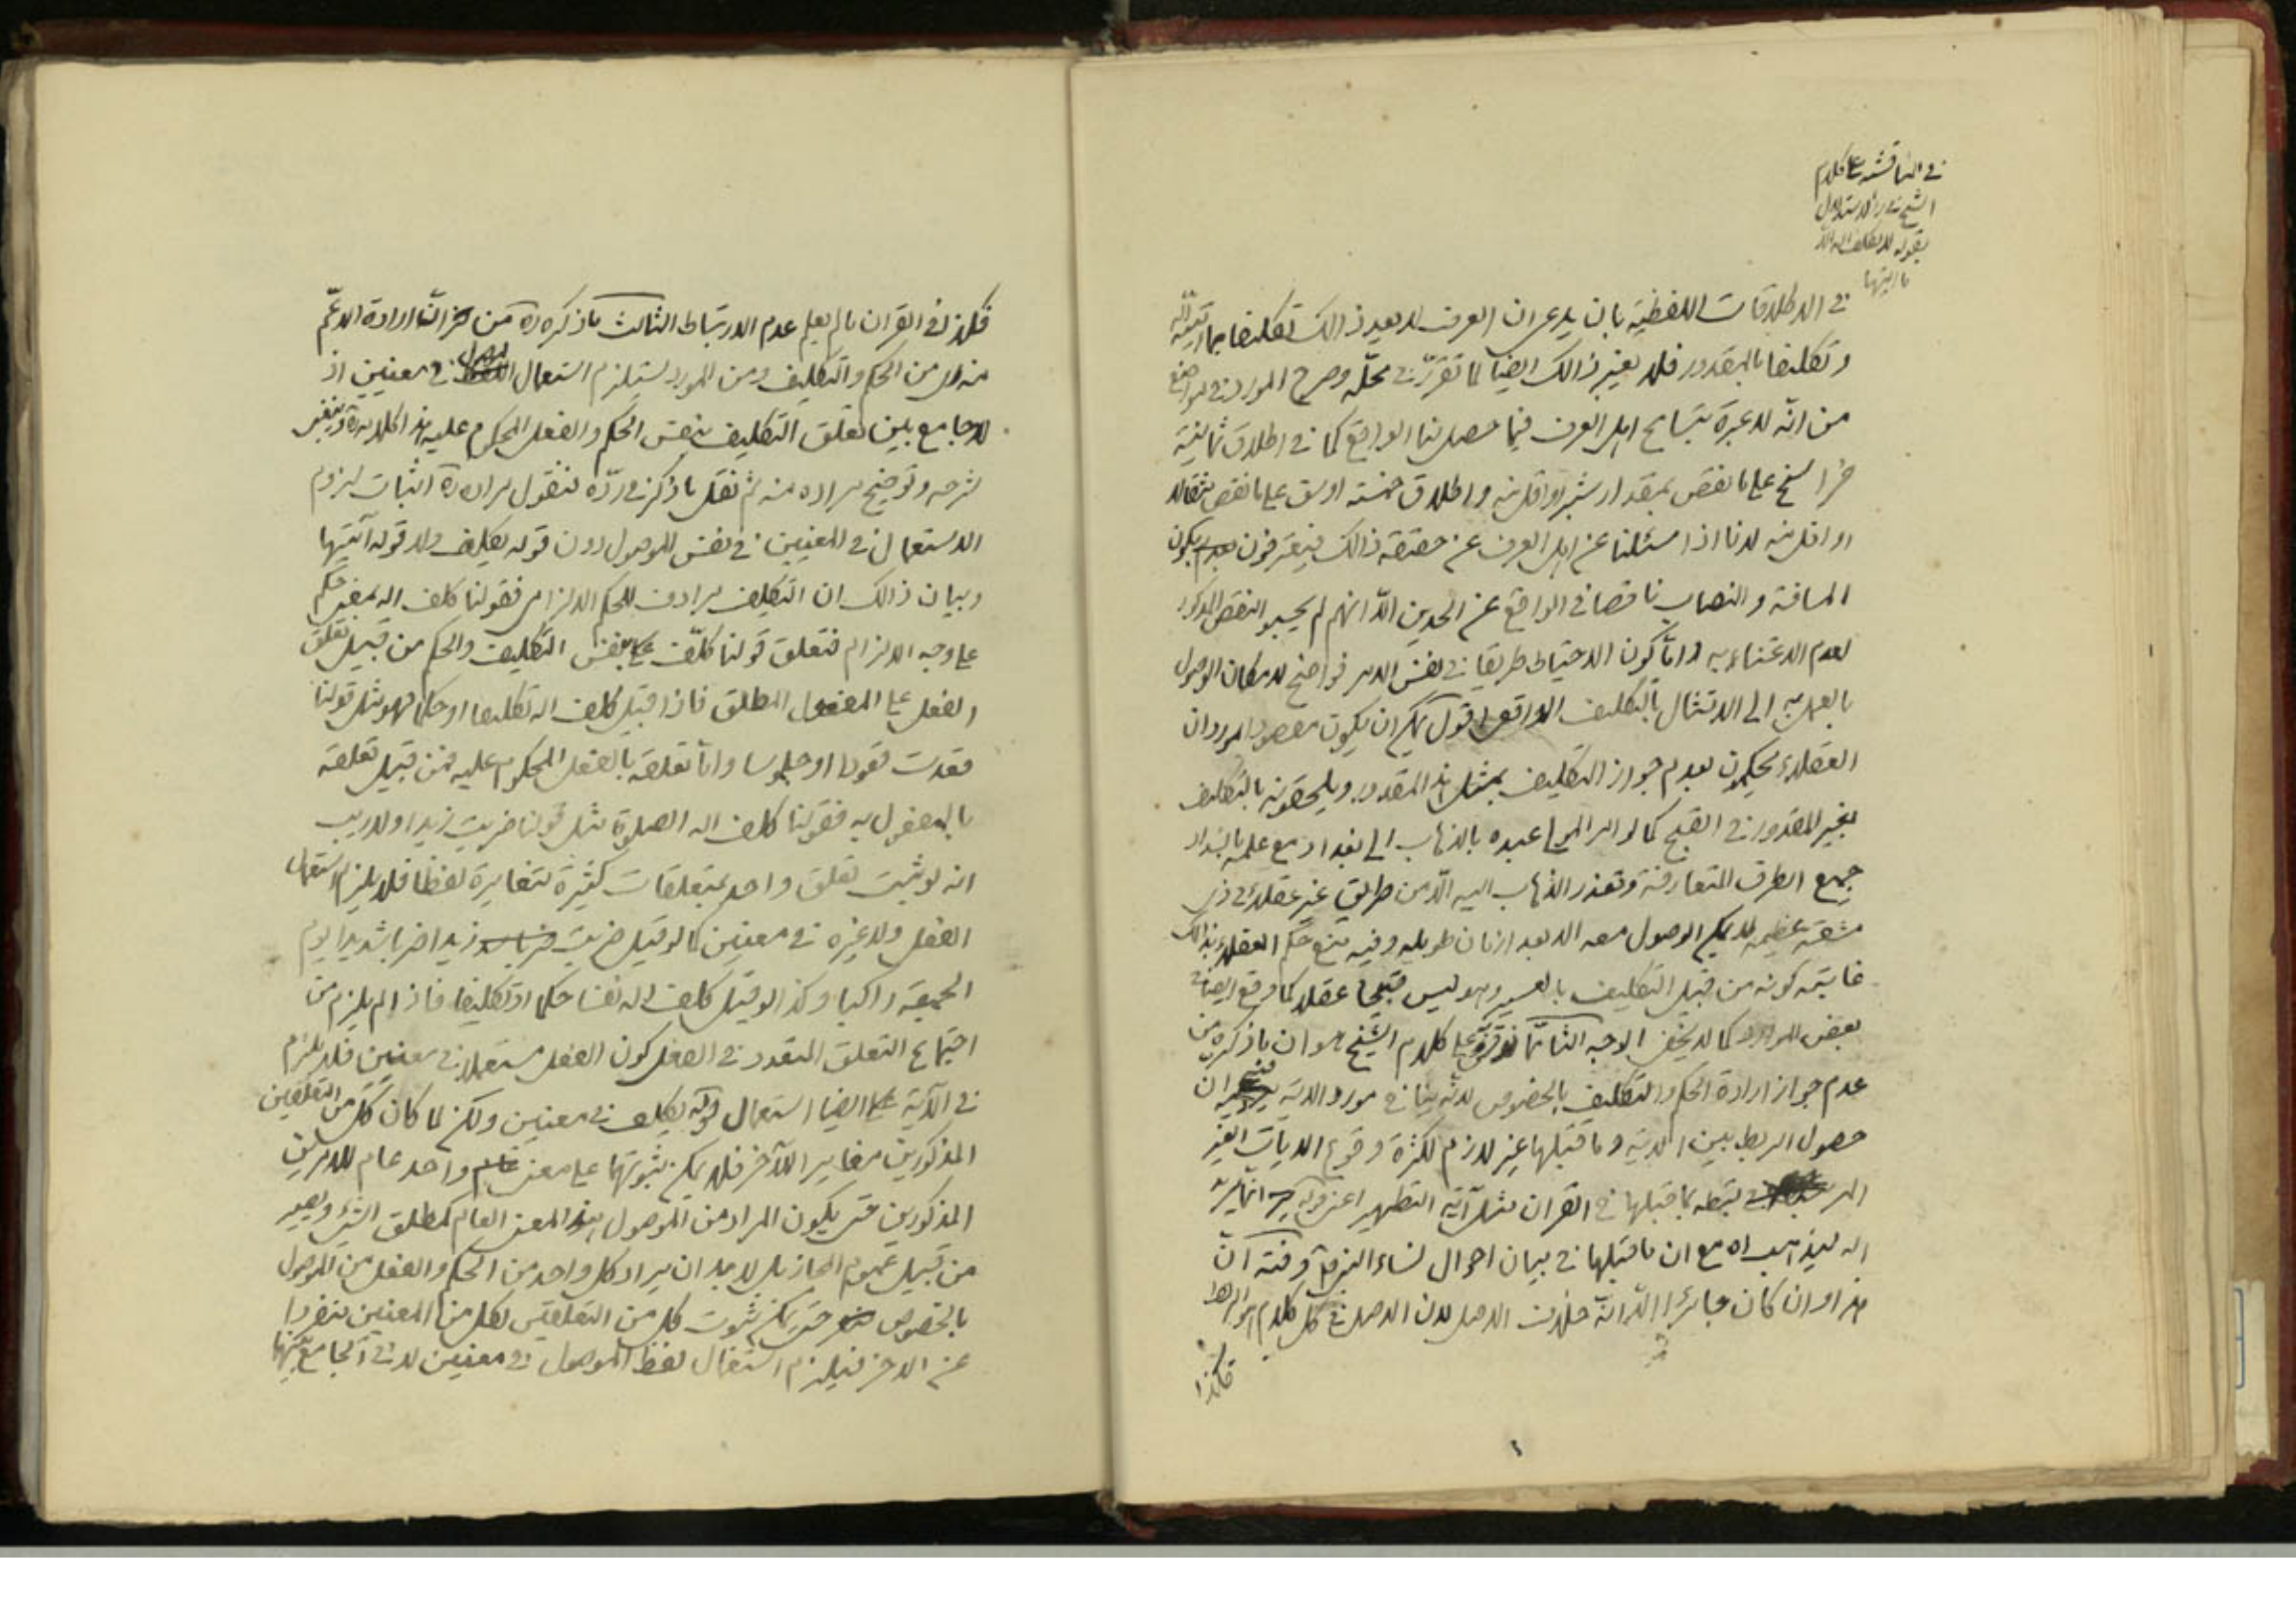 في المناقشة على كلام
الشيخ في رد الاستدلال
بقوله لا يكلف الله الا
ما اتيها
في الاطلاقات اللفظية بان يدعى ان العرف لا يعد ذالك تكليفا بما
وتكليفا بالمقدور فلا يعتبر ذالك ايضا لما تقرر في محله وصرح المورد في مواضع
من انه لا عبرة بتسامح اهل العرف فيما حصل لنا الواقع كما في اطلاق ثمانية
فراسخ على ما نقص بمقدار شبر او اقل منه واطلاق خمسة اوسق على ما نقص مثقالا
او اقل منه لانا اذا سئلنا عن اهل العرف عن حقيقة ذالك فيعترفون بكون
المسافة والنصاب ناقصا في الواقع عن الحدين الا انهم لم يحسبوا النقص المذكور
لعدم الاعتناء به واما كون الاحتياط طريقا في نفس الامر فواضح لامكان الوصول
بالعمل به الى الامتثال بالتكليف الواقعى اقول يمكن ان يكون مقصود المورد ان
العقلاء يحكمون بعدم جواز التكليف بمثل هذا المقدور ويلحقونه بالتكليف
بغير المقدور في القبح كما لو امر المولى عبده بالذهاب الى بغداد مع علمه بانسداد
جميع الطرق المتعارفة وتعذر الذهاب اليه الا من طريق غير عقلائى ذى
مشقة عظيمة لا يمكن الوصول معه الا بعد ازمان طويلة وفيه منع حكم العقلاء بذالك
غايته كونه من قبيل التكليف بالعسير وهو ليس قبيحا عقلا كما وقع ايضا في
بعض الموارد كما لا يخفى الوجه الثانى مما على كلام الشيخ هو ان ما ذكره من
عدم جواز ارادة الحكم والتكليف بالخصوص لانه ينافي مورد الاية ان
حصول الربط بين الاية وما قبلها غير لازم لكثرة وقوع الايات الغير
المرتبطة بما قبلها في القران مثل آية التطهير اعنى قوله انما يريد
الله ليذهب اه مع ان ما قبلها في بيان احوال نساء النبى وفيه ان
هذا وان كان جائزا الا انه خلاف الاصل لان الاصل في كل كلام هو الربط
فكذا
فكذا في القران ما لم يعلم عدم الارتباط الثالث ما ذكره ره من ان ارادة الاعم
منه من الحكم والتكليف ومن المورد يستلزم استعمال الموصول في معنيين اذ
لا جامع بين تعلق التكليف بنفس الحكم والفعل المحكوم عليه هذا كلامه ره وينبغى
شرحه وتوضيح مراده منه ثم نقل ما ذكر في رده فنقول مراده ره اثبات لزوم
الاستعمال في المعنيين في نفس الموصول دون قوله يكلف ولا قوله آتيها
وبيان ذالك ان التكليف يرادف للحكم الالزامى فقولنا كلف الله بمعنى حكم
على وجه الالزام فتعلق قولنا كلف بنفس التكليف والحكم من قبيل تعلق
الفعل على المفعول المطلق فاذا قيل كلف الله تكليفا او حكما فهو مثل قولنا
قعدت قعودا او جلوسا واما تعلقه بالفعل المحكوم عليه فمن قبيل تعلقه
بالمفعول به فقولنا كلف الله الصلوة مثل قولنا ضربت زيدا ولا ريب
انه لو ثبت تعلق واحد بمتعلقات كثيرة متغايرة لفظا فلا يلزم استعمال
الفعل ولا غيره في معنيين كما لو قيل ضربت زيدا ضربا شديدا يوم
الجمعة راكبا وكذا لو قيل كلف الله نفسا حكما او تكليفا فاذا لم يلزم من
اجتماع التعلق المتعدد في الفعل كون الفعل مستعملا في معنيين فلا يلزم
في الآية ايضا استعمال قوله يكلف في معنيين ولكن لما كان كل من التعلقين
المذكورين مغاير الآخر فلا يمكن ثبوتهما على معنى واحد عام للامرين
المذكورين حتى يكون المراد من الموصول هذا المعنى العام كمطلق الشئ ويصير
من قبيل عموم المجاز بل لا بد ان يراد كل واحد من الحكم والفعل من الموصول
بالخصوص حتى يمكن ثبوت كل من التعلقين لكل من المعنيين منفردا
عن الاخر فيلزم استعمال لفظ الموصول في معنيين لا في الجامع بينهما